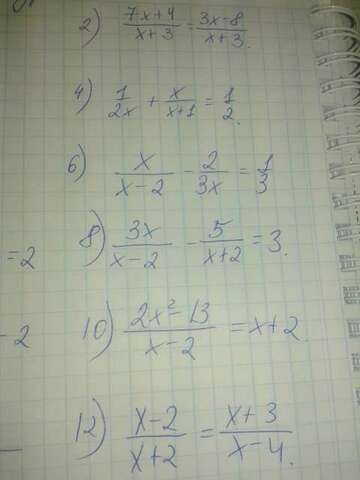 2) (7x+4)/(x+3) = (3x-8)/(x+3).
4) 1/(2x) + x/(x+1) = 1/2.
6) x/(x-2) - 2/(3x) = 1/3
= 2
8) 3x/(x-2) - 5/(x+2) = 3.
- 2
10) (2x²-13)/(x-2) = x+2.
12) (x-2)/(x+2) = (x+3)/(x-4).